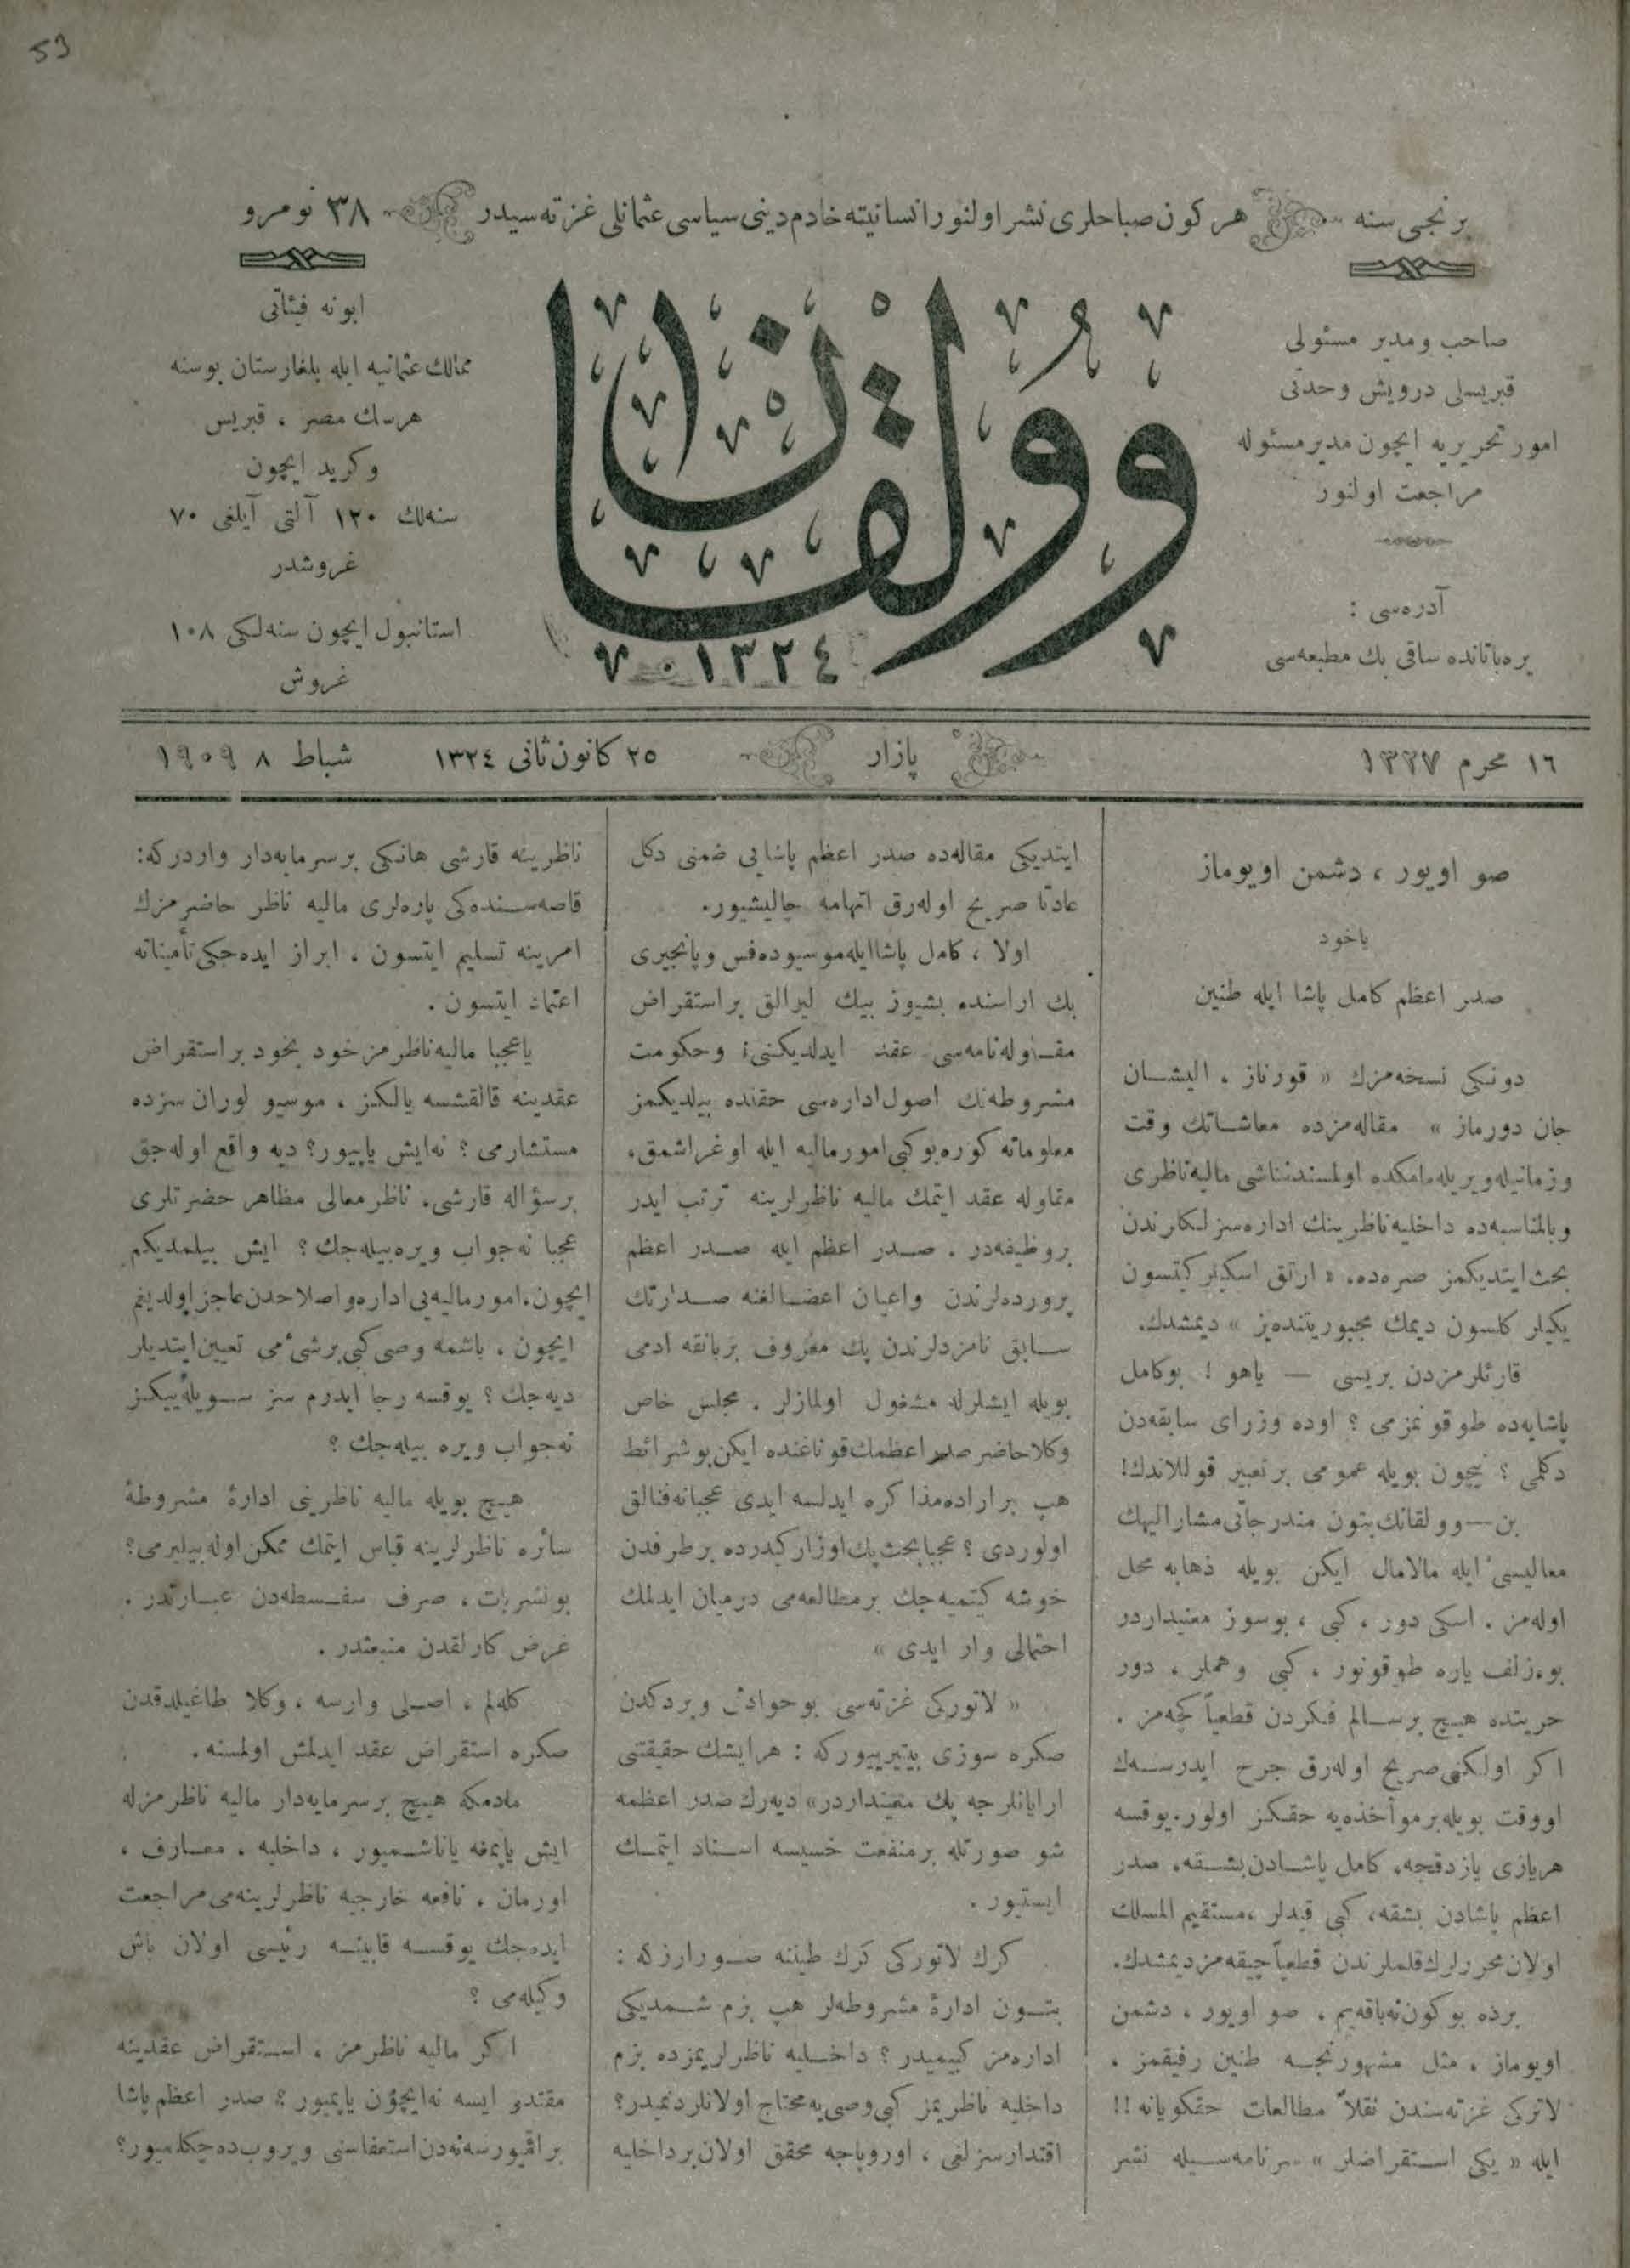 53
برنجی سنه هر كون صباحلری نشر اولنور انسانیته خادم دینی سیاسی عثمانلی غزته سیدر ٣٨ نومرو
صاحب و مدیر مسئولی
قبریسلی درویش وحدتی
امور تحریریه ایچون مدیر مسئوله
مراجعت اولنور
آدره‌سی :
یره‌باتانده ساقی بك مطبعه‌سی
وولقان
١٣٢٤
ابونه فیئاتی
ممالك عثمانیه ایله بلغارستان بوسنه
هرسك مصر ، قبریس
وكرید ایچون
سنه‌لك ١٢٠ آلتی آیلغی ٧٠
غروشدر
استانبول ایچون سنه‌لكی ١٠٨
غروش
١٦ محرم ١٣٢٧ پازار ٢٥ كانون ثانی ١٣٢٤ شباط ٨ ١٩٠٩
صو اویور ، دشمن اویوماز
یاخود
صدر اعظم كامل پاشا ایله طنین
دونكی نسخه‌مزك « قورناز ، الیشان
جان دورماز » مقاله‌مزده معاشاتك وقت
و زمانیله ویریله‌مامكده اولمسندنناشی مالیه ناظری
وبالمناسبه‌ده داخلیه ناظرینك اداره‌سزلكلرندن
بحث ایتدیكمز صره‌ده، « ارتق اسكیلر كیتسون
یكیلر كلسون دیمك مجبوریتنده‌یز » دیمشدك.
قارئلرمزدن بریسی — یاهو ! بو كامل
پاشایه‌ده طوقونمزمی ؟ اوده وزرای سابقه‌دن
دكلمی ؟ نیچون بویله عمومی بر تعبیر قوللاندك!
بن — وولقانك بتون مندرجاتی مشارالیهك
معالیسی ایله مالامال ایكن بویله ذهابه محل
اوله‌مز . اسكی دور ، كبی ، بو سوز معنیداردر
بوهزلف یاره طوقونور ، كبی وهملر ، دور
حریتده هیچ بر سالم فكردن قطعیاً كچه‌مز .
اكر اولكنی صریح اوله‌رق جرح ایدرسه‌ك
او وقت بویله بر مواخذه‌یه حقكز اولور. یوقسه
هر یازی یازدقجه، كامل پاشادن بشقه، صدر
اعظم پاشادن بشقه، كبی قیدلر ، مستقیم المسلك
اولان محررلرك قلملرندن قطعیاً چیقه‌مز دیمشدك.
برده بوكون نه باقه‌یم ، صو اویور ، دشمن
اویوماز ، مثل مشهورنجه طنین رفیقمز ،
لاتركی غزته‌سندن نقلاً مطالعات حقكویانه !!
ایله « یكی استقراضلر » سرنامه‌سیله نشر
ایتدیكی مقاله‌ده صدر اعظم پاشایی ضمنی دكل
عادتا صریح اوله‌رق اتهامه چالیشیور.
اولا ، كامل پاشا ایله موسیو ده‌فس و پانجیری
بك اراسنده بشیوز بیك لیرالق بر استقراض
مقاوله‌نامه‌سی عقد ایدلدیكنی؛ وحكومت
مشروطه‌نك اصول اداره‌سی حقنده بیلدیكمز
معلوماته كوره بوكبی امور مالیه ایله اوغراشمق،
مقاوله عقد ایتمك مالیه ناظرلرینه ترتب ایدر
بر وظیفه‌در . صدر اعظم ایله صدر اعظم
پرورده‌لرندن واعیان اعضالغنه صدارتك
سابق نامزدلرندن پك معروف بر بانقه ادمی
بویله ایشلرله مشغول اولمازلر . مجلس خاص
وكلا حاضر صدر اعظمك قوناغنده ایكن بو شرائط
هپ بر اراده مذاكره ایدلسه ایدی عجبا نه فنالق
اولوردی ؟ عجبا بحث پك اوزار كیدرده بر طرفدن
خوشه كیتمیه‌جك بر مطالعه‌می درمیان ایدلمك
احتمالی وار ایدی »
« لاتوركی غزته‌سی بو حوادثی ویردكدن
صكره سوزی بیتیرییوركه : هر ایشك حقیقتنی
ارایانلرجه پك معنیداردر» دیه‌رك صدر اعظمه
شو صورتله بر منفعت خسیسه اسناد ایتمك
ایستیور .
كرك لاتوركی كرك طنینه صورارزكه :
بتون ادارهٔ مشروطه‌لر هپ بزم شمدیكی
اداره‌مز كبیمیدر ؟ داخلیه ناظرلریمزده بزم
داخلیه ناظریمز كبی وصی‌یه محتاج اولانلردنمیدر؟
اقتدارسزلغی ، اوروپاجه محقق اولان بر داخلیه
ناظرینه قارشی هانكی بر سرمایه‌دار واردركه:
قاصه‌سنده‌كی پاره‌لری مالیه ناظر حاضرمزك
امرینه تسلیم ایتسون ، ابراز ایده‌جكی تأمیناته
اعتماد ایتسون .
یا عجبا مالیه ناظرمز خود بخود بر استقراض
عقدینه قالقشسه یالكز ، موسیو لوران سزده
مستشارمی ؟ نه ایش یاپیور؟ دیه واقع اوله‌جق
بر سؤاله قارشی، ناظر معالی مظاهر حضرتلری
عجبا نه جواب ویره‌بیله‌جك ؟ ایش بیلمدیكم
ایچون. امور مالیه‌یی اداره و اصلاحدن عاجز اولدیغم
ایچون ، باشمه وصی كبی برشئ‌می تعیین ایتدیلر
دیه‌جك ؟ یوقسه رجا ایدرم سز سویله‌ییكز
نه جواب ویره بیله‌جك ؟
هیچ بویله مالیه ناظرینی ادارهٔ مشروطهٔ
سائره ناظرلرینه قیاس ایتمك ممكن اوله‌بیلیرمی؟
بو نشریات ، صرف سفسطه‌دن عبارتدر .
غرض كارلقدن منبعثدر .
كله‌لم ، اصلی وارسه ، وكلا طاغیلدقدن
صكره استقراض عقد ایدلمش اولمسنه.
مادمكه هیچ بر سرمایه‌دار مالیه ناظرمزله
ایش یاپمغه یاناشمیور ، داخلیه ، معارف ،
اورمان ، نافعه خارجیه ناظرلرینه‌می مراجعت
ایده‌جك یوقسه قابینه رئیسی اولان باش
وكیله‌می ؟
اكر مالیه ناظرمز ، استقراض عقدینه
مقتدر ایسه نه ایچون یاپمیور ؟ صدر اعظم پاشا
براقمیورسه نه‌دن استعفاسنی ویروب‌ده چكلمیور؟